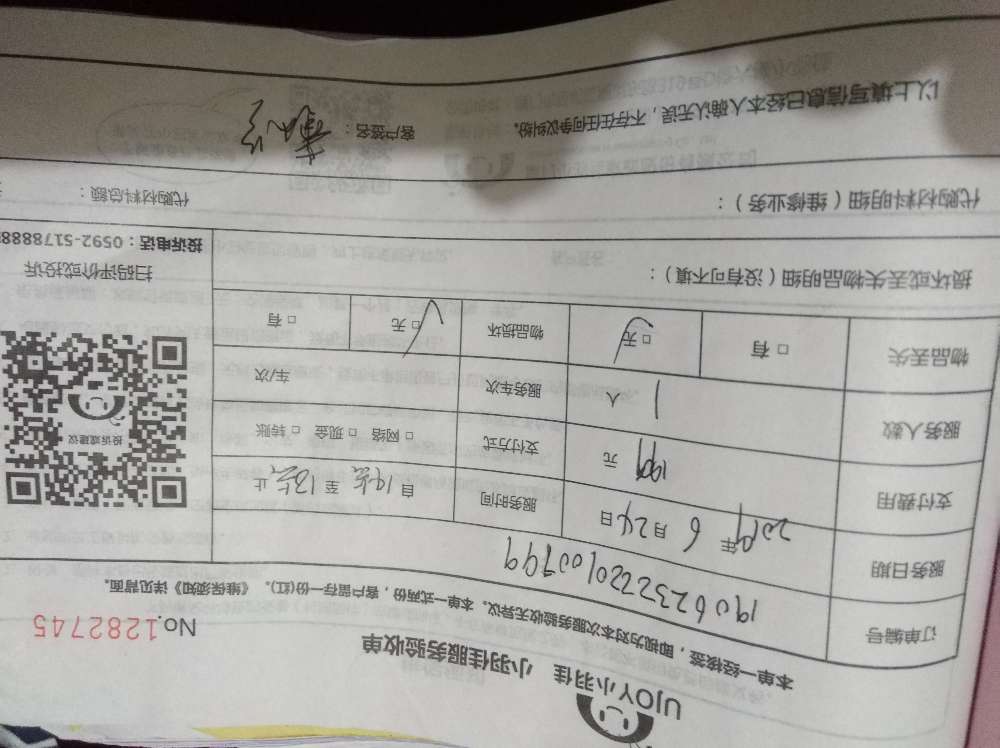 UJOY小羽佳 小羽佳服务验收单
No.1282745
本单一经核签，即视为对本次服务验收无异议。本单一式两份，客户留存一份(红)。《维保须知》详见背面。
订单编号
服务日期 2019年 6 月 24 日 服务时间
支付费用 199 元 支付方式 □ 网络 □ 现金 □ 转账
服务人数 1 人 服务车次 车/次
物品丢失 □ 有 □ 无 物品损坏 □ 无 □ 有
投诉或建议
扫码评价或投诉
投诉电话：0592-5178888
损坏或丢失物品明细（没有可不填）：
代购材料明细（维修业务）： 代购材料总额：
以上填写信息已经本人确认无误，不存在任何争议纠纷。 客户签名：